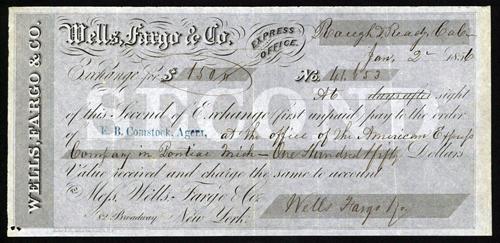 WELLS, FARGO & CO.
Wells, Fargo & Co.
EXPRESS OFFICE.
Rough & Ready, Cal.
Jan. 2 1856
Exchange for $ 150
No. 41.853
SECOND
At days after sight
of this Second of Exchange first unpaid pay to the order
of E. B. Comstock, Agent, at the office of the American Express
Company in Pontiac Mich — One Hundred fifty Dollars
Value received and charge the same to account
To Mess. Wells Fargo & Co.
82 Broadway New York.
Wells Fargo & Co